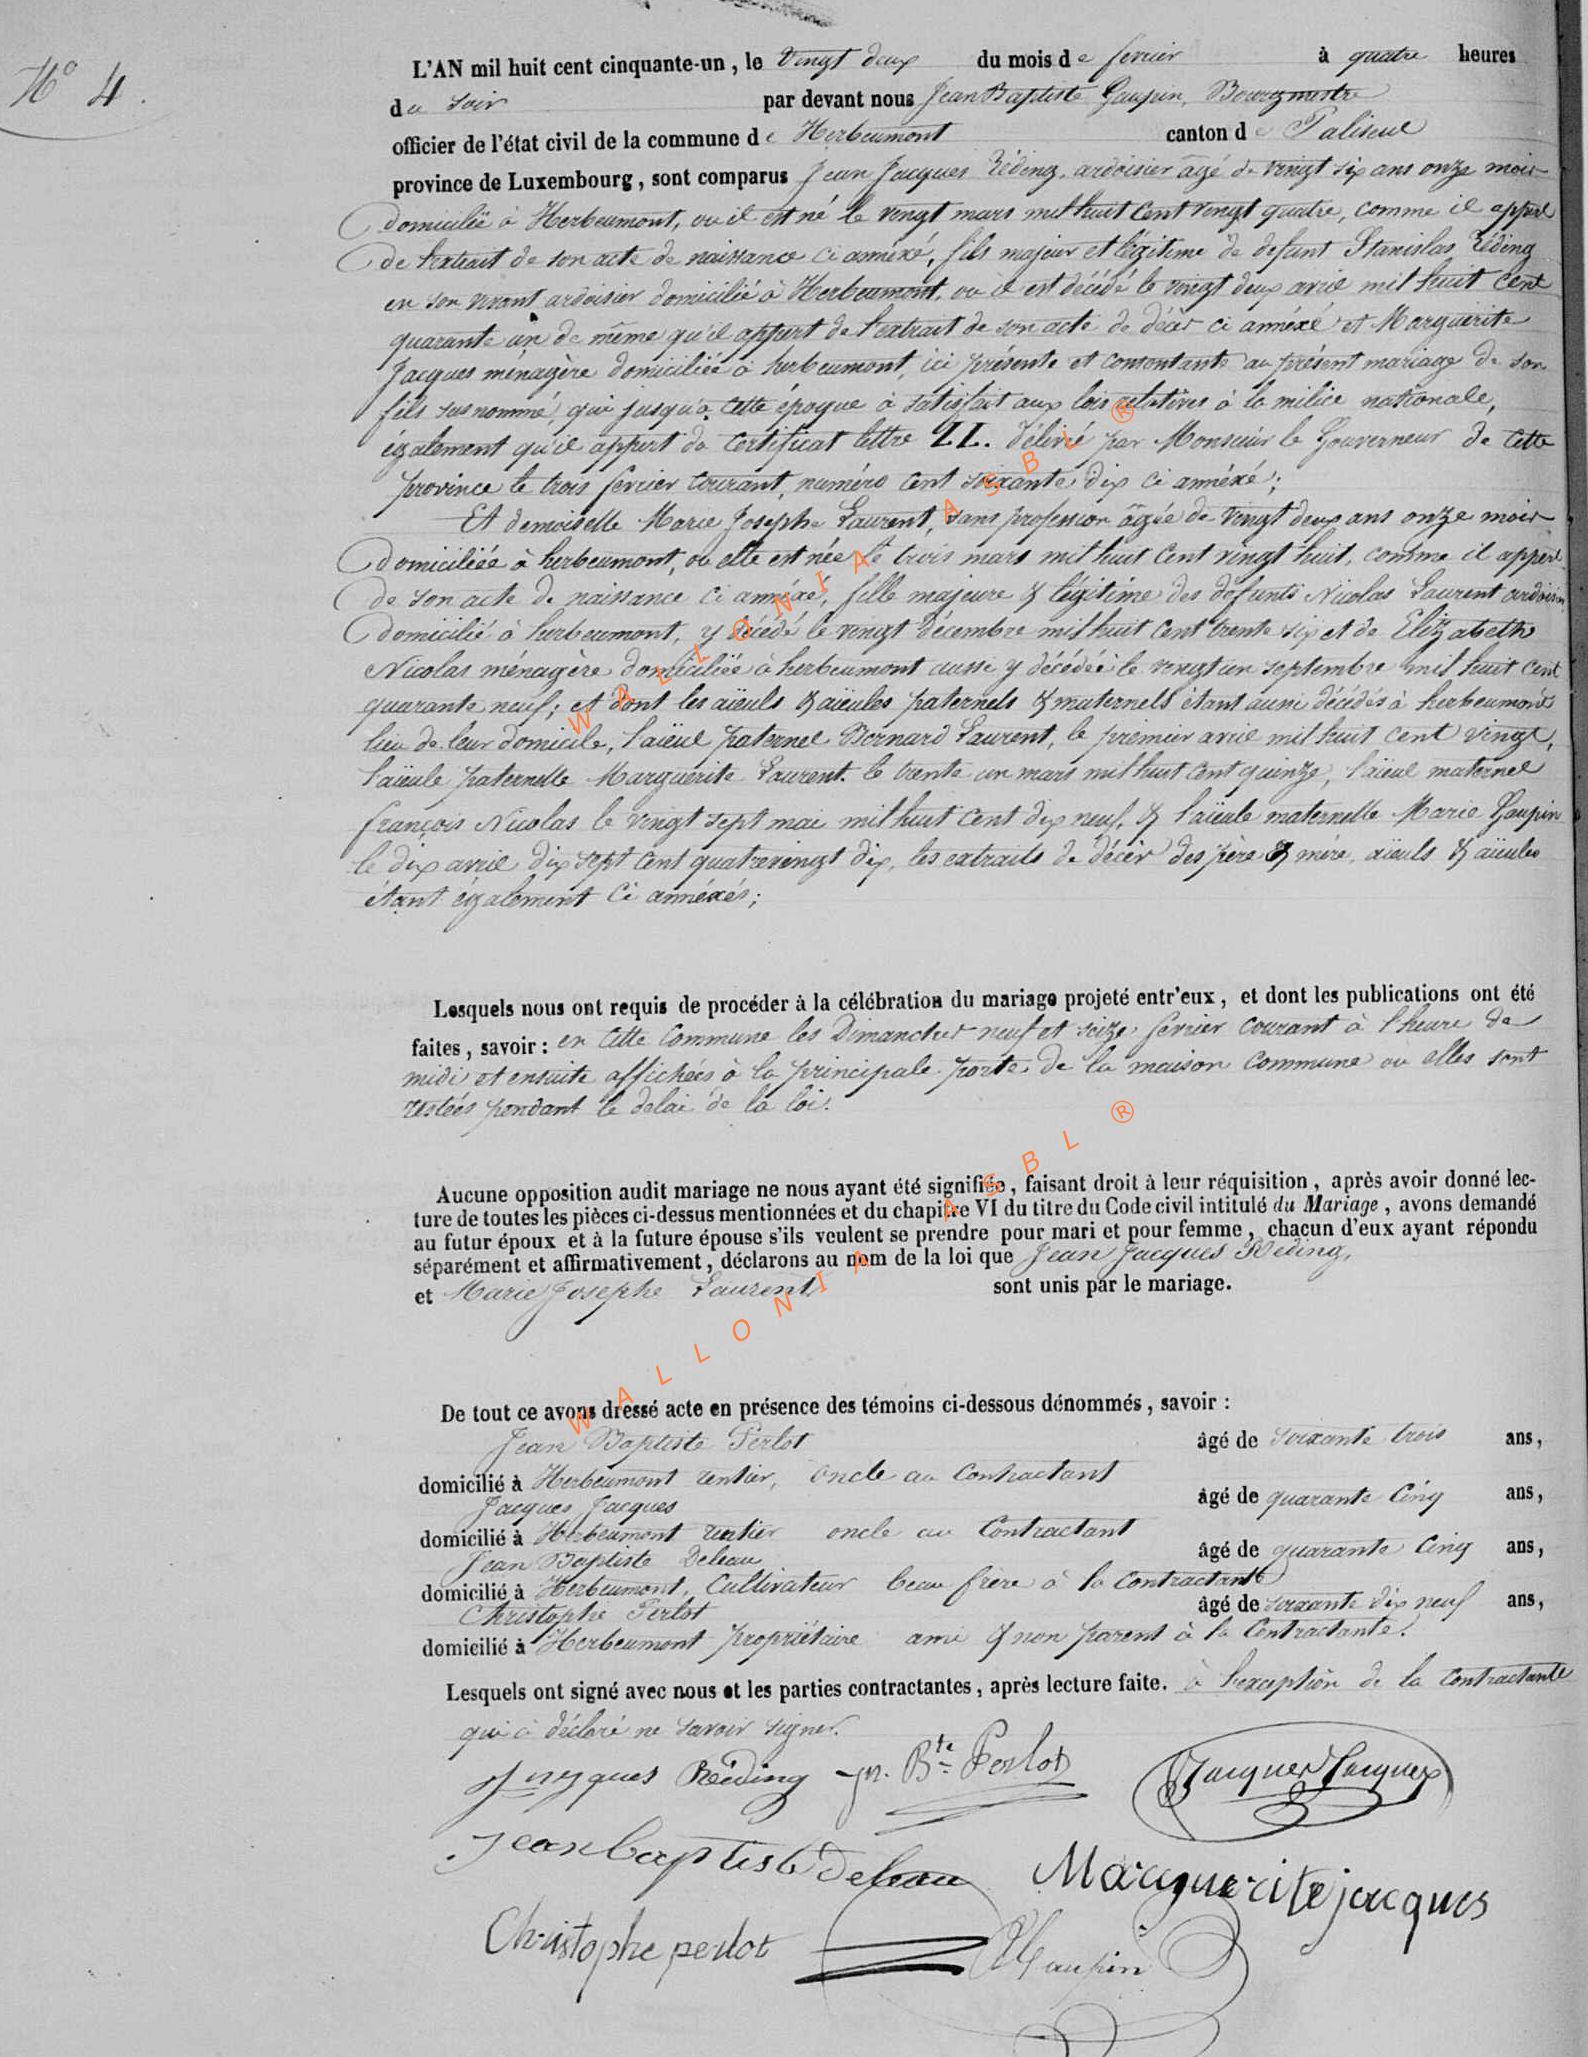 N° 4.
L'AN mil huit cent cinquante-un, le vingt deux du mois de fevrier à quatre heures
du soir par devant nous Jean Baptiste Gaupin, Bourgmestre
officier de l'état civil de la commune de Herbeumont canton de Paliseul
province de Luxembourg, sont comparus Jean Jacques Réding, ardoisier agé de vingt six ans onze mois
domicilié à Herbeumont, ou il est né le vingt mars mil huit cent vingt quatre, comme il appert
de l'extrait de son acte de naissance ci annéxé, fils majeur et légitime de defunt Stanislas Réding
en son vivant ardoisier domicilié à Herbeumont, ou il est décédé le vingt deux avril mil huit cent
quarante un de même qu'il appert de l'extrait de son acte de décès ci annéxé et Marguerite
Jacques ménagère domiciliée à herbeumont, ici présente et consentante au présent mariage de son
fils susnommé, qui jusqu'à cette époque à satisfait aux lois relatives à la milice nationale,
également qu'il appert du certificat lettre LL. délivré par Monsieur le Gouverneur de cette
province le trois fevrier courant, numéro cent soixante dix ci annéxé;
Et demoiselle Marie Josephe Laurent, sans profession âgée de vingt deux ans onze mois
domiciliéé à herbeumont, ou elle est née le trois mars mil huit cent vingt huit, comme il appert
de son acte de naissance ci annéxé, fille majeure & légitime des défunts Nicolas Laurent ardoisier
domicilié à herbeumont, y décédé le vingt décembre mil huit cent trente six et de Elizabeth
Nicolas ménagère domiciliée à herbeumont aussi y décédéé le vingt un septembre mil huit cent
quarante neuf; et dont les aïeuls & aïeules paternels & maternels étant aussi décédés à herbeumont
lieu de leur domicile, l'aïeul paternel Bernard Laurent, le prémier avril mil huit cent vingt,
l'aïeule paternelle Marguerite Laurent. le trente un mars mil huit cent quinze, l'aïeul maternel
françois Nicolas le vingt sept mai mil huit cent dix neuf, & l'aïeule maternelle Marie Gaupin
le dix avril dix sept cent quatrevingt dix, les extraits de décès des père & mère, aïeuls & aïeules
étant également ci annéxés;
Lesquels nous ont requis de procéder à la célébration du mariage projeté entr'eux, et dont les publications ont été
faites, savoir : en cette commune les Dimanches neuf et seize fevrier courant à l'heure de
midi et ensuite affichées à la principale porte de la maison commune ou elles sont
restées pendant le délai de la loi.
Aucune opposition audit mariage ne nous ayant été signifiée, faisant droit à leur réquisition, après avoir donné lec-
ture de toutes les pièces ci-dessus mentionnées et du chapitre VI du titre du Code civil intitulé du Mariage, avons demandé
au futur époux et à la future épouse s'ils veulent se prendre pour mari et pour femme, chacun d'eux ayant répondu
séparément et affirmativement, déclarons au nom de la loi que Jean Jacques Réding,
et Marie Josephe Laurent, sont unis par le mariage.
De tout ce avons dressé acte en présence des témoins ci-dessous dénommés, savoir :
Jean Baptiste Perlot âgé de soixante trois ans,
domicilié à Herbeumont rentier, oncle au contractant
Jacques Jacques âgé de quarante cinq ans,
domicilié à Herbeumont rentier oncle au contractant
Jean Baptiste Deleau âgé de quarante cinq ans,
domicilié à Herbeumont, cultivateur beau frère à la contractante
Christophe Perlot âgé de soixante dix neuf ans,
domicilié à Herbeumont propriétaire ami & non parent à la contractante.
Lesquels ont signé avec nous et les parties contractantes, après lecture faite. à l'exception de la contractante
qui à déclaré ne savoir signer.
Réding Jn. Bte Perlot Jacques Jacques
Jean baptiste deleau Marguerite jacques
Christophe perlot Gaupin
WALLONIA ASBL ®
WALLONIA ASBL ®